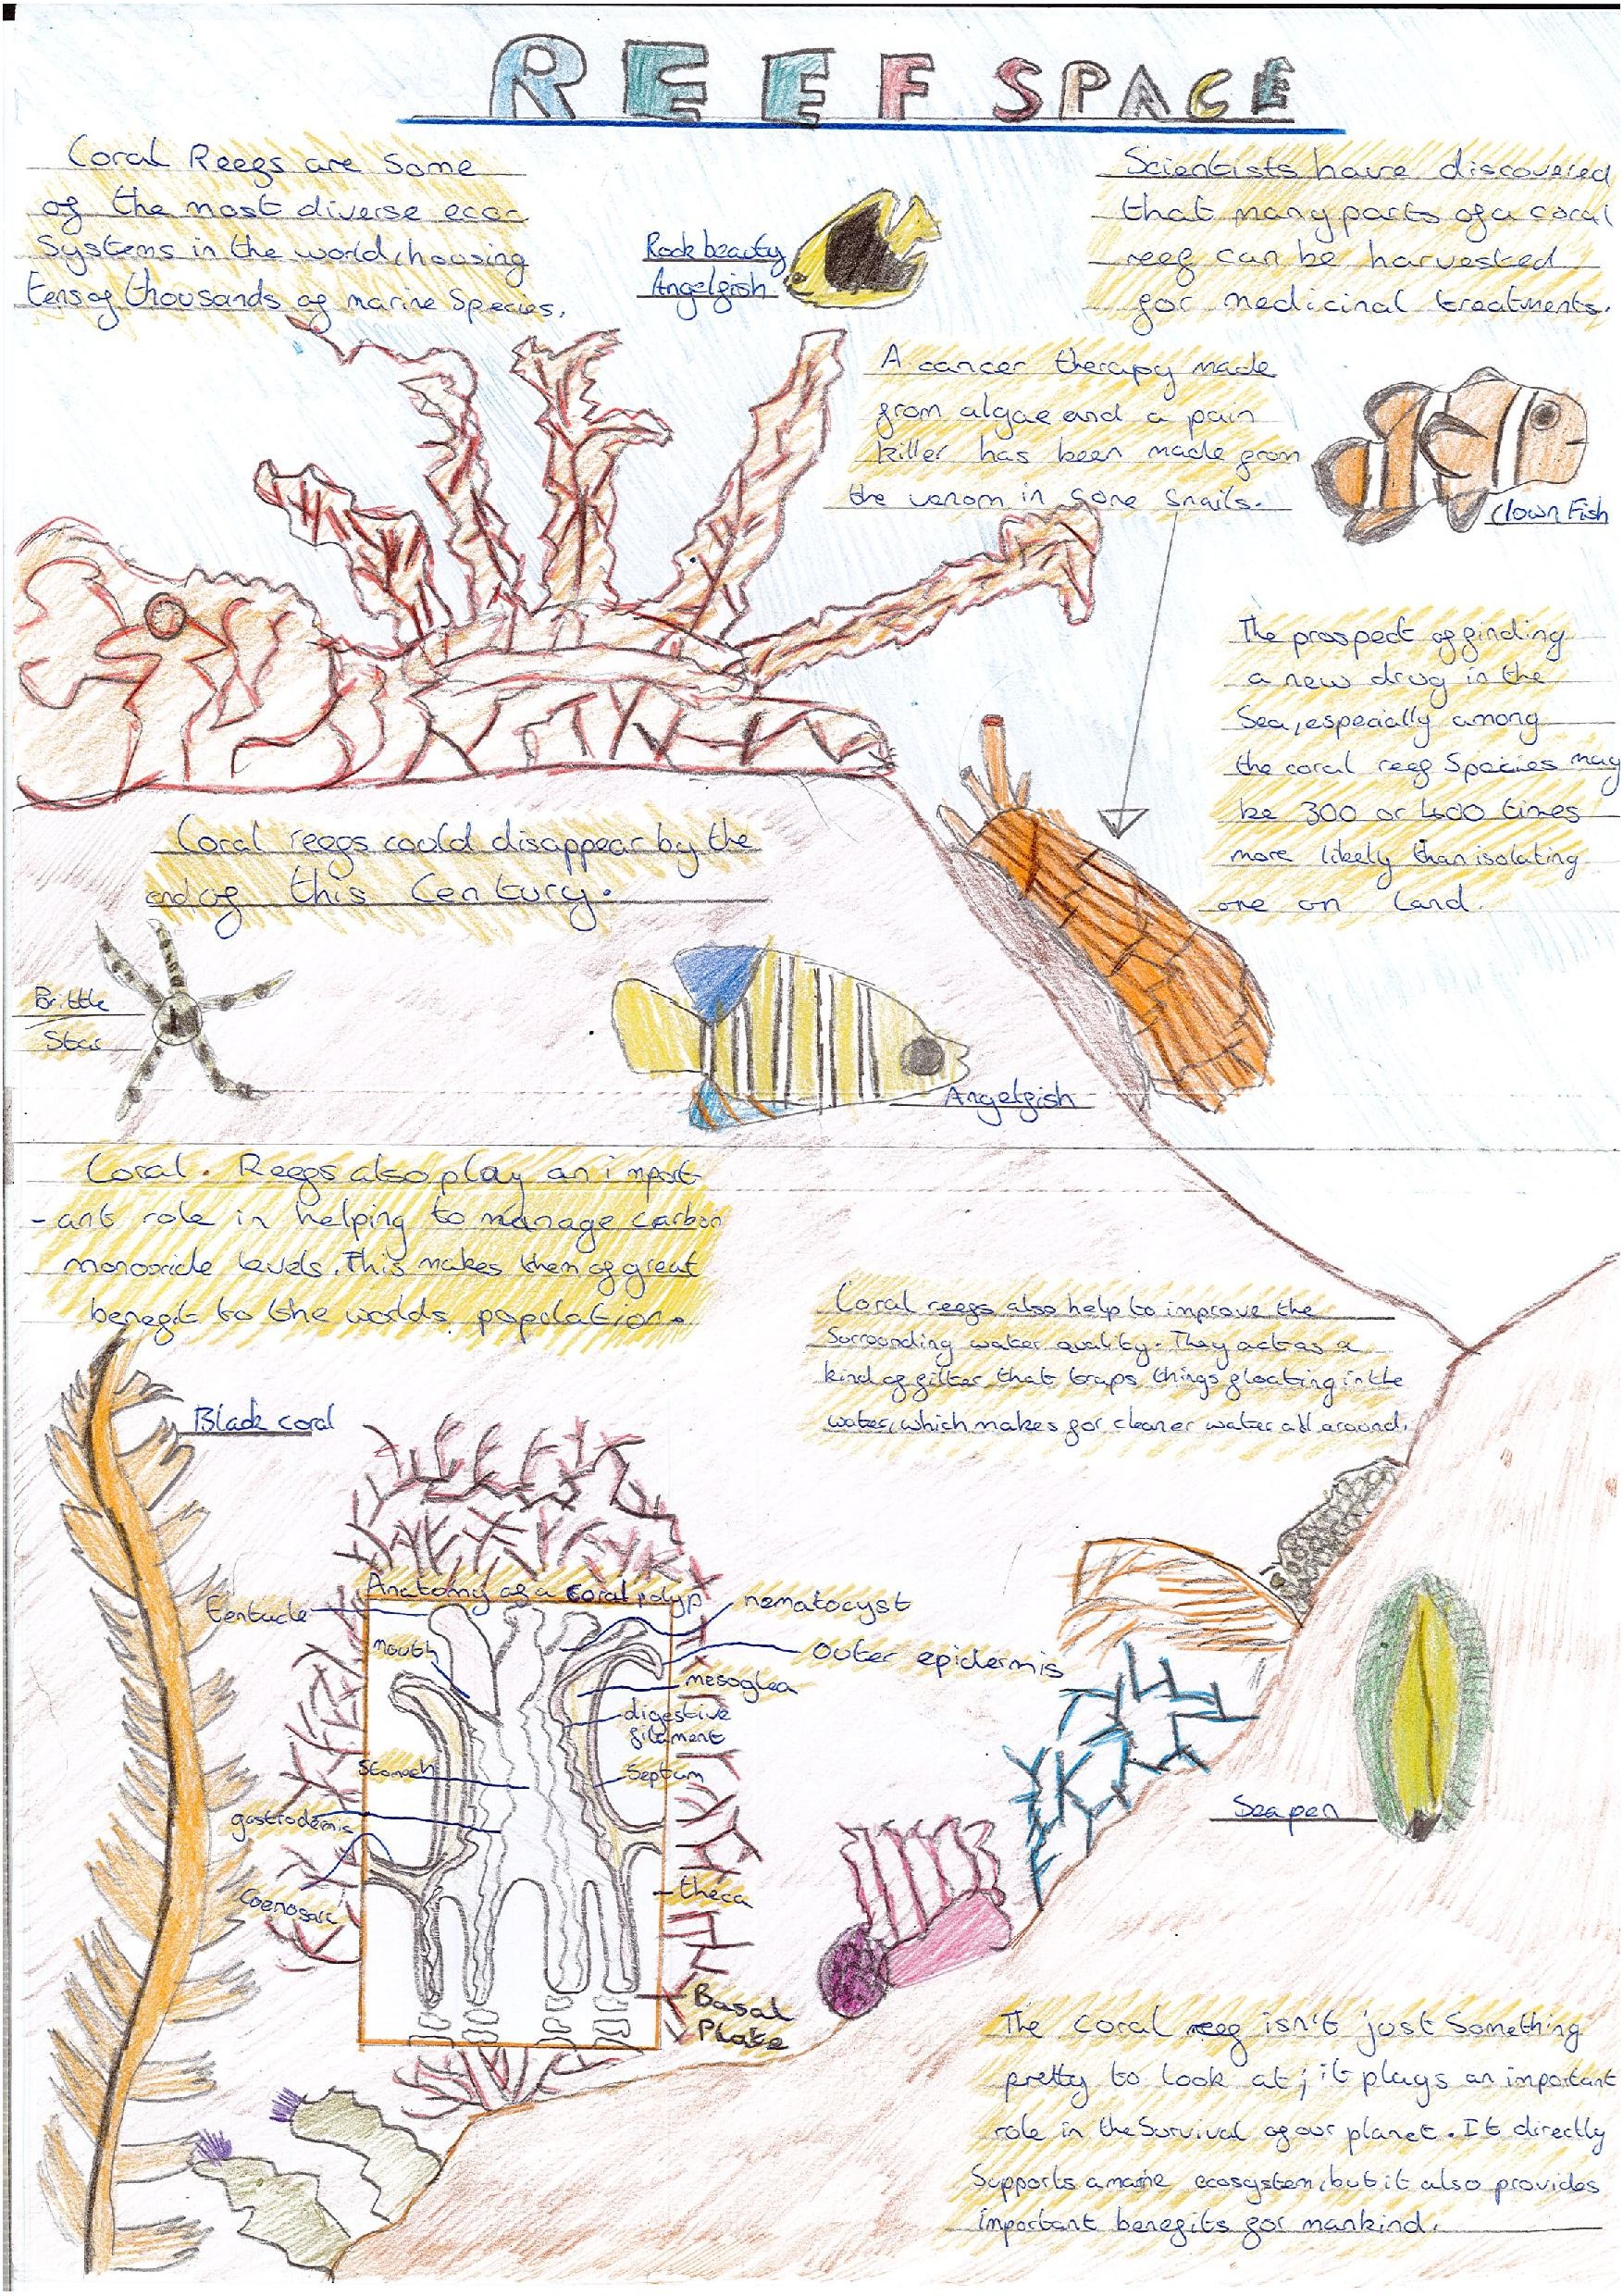 REEF SPACE
Coral Reefs are some
of the most diverse eco
systems in the world, housing
tens of thousands of marine Species.
Rock beauty
Angelfish
Scientists have discovered
that many parts of a coral
reef can be harvested
for medicinal treatments.
A cancer therapy made
from algae and a pain
killer has been made from
the venom in Some Snails.
Clown Fish
The prospect of finding
a new drug in the
Sea, especially among
the coral reef Species may
be 300 or 400 times
more likely than isolating
one on Land.
Coral reefs could disappear by the
end of this Century.
Brittle
Star
Angelfish
Coral. Reefs also play an import
-ant role in helping to manage carbon
monoxide levels. This makes them of great
benefit to the worlds population.
Coral reefs also help to improve the
Surrounding water quality. They act as a
kind of filter that traps things floating in the
water, which makes for cleaner water all around.
Black coral
Anatomy of a coral polyp
tentacle
nematocyst
mouth
Outer epidermis
mesoglea
digestive
filament
Stomach
Septum
gastrodemis
Coenosarc
theca
Basal
Plate
Sea pen
The coral reef isn't just Something
pretty to look at; it plays an important
role in the Survival of our planet. It directly
Supports a marine ecosystem, but it also provides
important benefits for mankind.